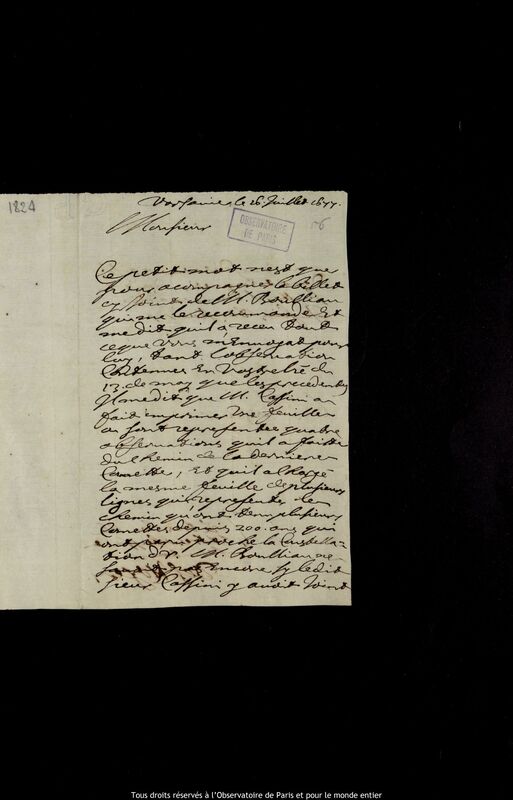 1824
Varsavie le 26 Juillet 1677.
56
OBSERVATOIRE
DE PARIS
Monsieur
Ce petit mot n'est que
pour acompagner le billet
cy joint de M. Boulliau
qui me le recomande Et
me dit qu'il a receu tout
ce que vous m'envoyat pour
luy, tant l'observation
Contenue En vostre lre du
13. de may que les precedentes
Il me dit que M. Cassini a
fait imprimer une feuille
ou sont representee quatre
observations qu'il a faitte
du chemin de la derniere
Comette, Et qu'il a
la mesme feuille de plusieurs
lignes qui represente le
chemin qu'ont tenu plusieurs
Comettes depuis 200. ans qui
ont paru proche la Constella-
tion d' M. Boulliau ne
pas encore sy ledit
sieur Cassini y avoit joint
Tous droits réservés à l'Observatoire de Paris et pour le monde entier